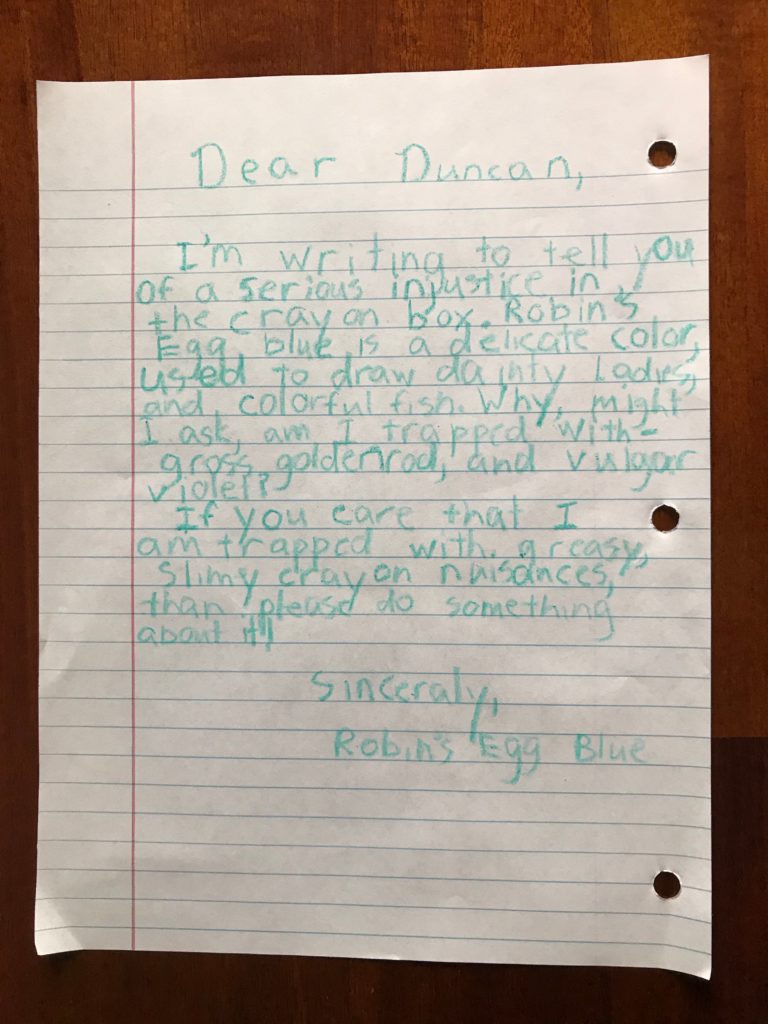 Dear Duncan,
I'm writing to tell you
of a serious injustice in
the crayon box. Robin's
Egg blue is a delicate color,
used to draw dainty Ladys,
and colorful fish. Why, might
I ask, am I trapped with-
gross goldenrod, and vulgar
violet?
If you care that I
am trapped with greasy,
slimy crayon nuisances,
than please do something
about it!
Sinceraly,
Robin's Egg Blue